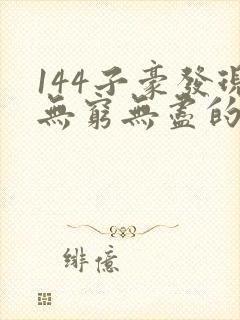 144子豪發現
無窮無盡的
緋億